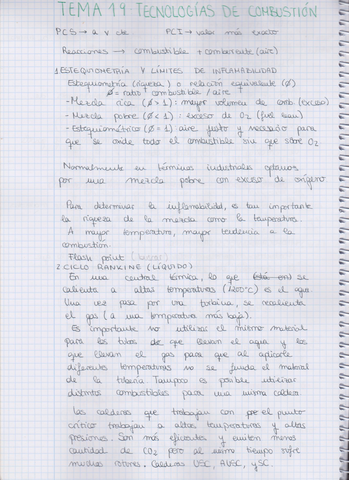 TEMA 19 TECNOLOGÍAS DE COMBUSTIÓN
PCS → a v cte PCI → valor más exacto
Reacciones → combustible + comburente (aire)
1. ESTEQUIOMETRÍA Y LÍMITES DE INFLAMABILIDAD
Estequiometría (riqueza) o relación equivalente (Ø)
Ø = ratio combustible / aire
- Mezcla rica (Ø > 1): mayor volumen de comb (exceso)
- Mezcla pobre (Ø < 1): exceso de O2 (fuel lean)
- Estequiométrico (Ø = 1): aire justo y necesario para
que se queme todo el combustible sin que sobre O2
Normalmente en términos industriales optamos
por una mezcla pobre con exceso de oxígeno
Para determinar la inflamabilidad, es tan importante
la riqueza de la mezcla como la temperatura.
A mayor temperatura, mayor tendencia a la
combustión
Flash point
2. CICLO RANKINE (LÍQUIDO)
En una central térmica, lo que se
calienta a altas temperaturas (1200°C) es el agua.
Una vez pasa por una turbina, se recalienta
el gas (a una temperatura más baja).
Es importante no utilizar el mismo material
para los tubos de que llevan el agua y los
que llevan el gas para que al aplicarle
diferentes temperaturas no se funda el material
de la tubería. Tampoco es posible utilizar
distintos combustibles para una misma caldera
Las calderas que trabajan con por el punto
crítico trabajan a altas temperaturas y altas
presiones. Son más eficientes y emiten menos
cantidad de CO2 pero al mismo tiempo sufre
muchos Calderas USC, AUSC, y SC.